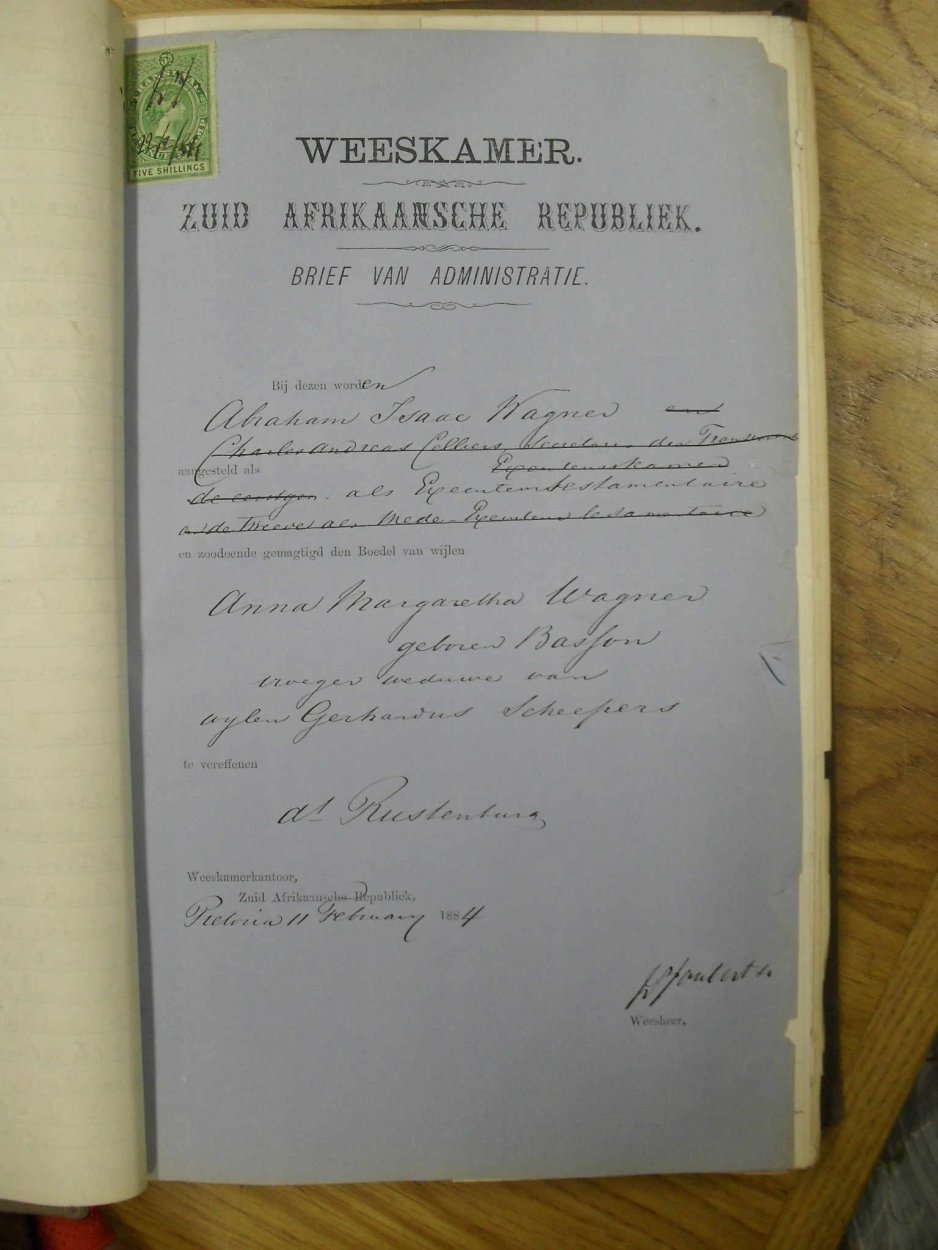 FIVE SHILLINGS
WEESKAMER.
ZUID AFRIKAANSCHE REPUBLIEK.
BRIEF VAN ADMINISTRATIE.
Bij dezen worden
Abraham Isaac Wagner en
Charles Andreas Celliers, Secretaris der Transvaal
aangesteld als Executeurskamer
de eerstgen. als Executeur testamentaire
en de tweede als Mede-Executeur testamentaire
en zoodoende gemagtigd den Boedel van wijlen
Anna Margaretha Wagner
geboren Basson
vroeger weduwe van
wylen Gerhardus Scheepers
te vereffenen
dt Rustenburg
Weeskamerkantoor,
Zuid Afrikaansche Republiek,
Pretoria 11 February 1884
Joubert
Weesheer,